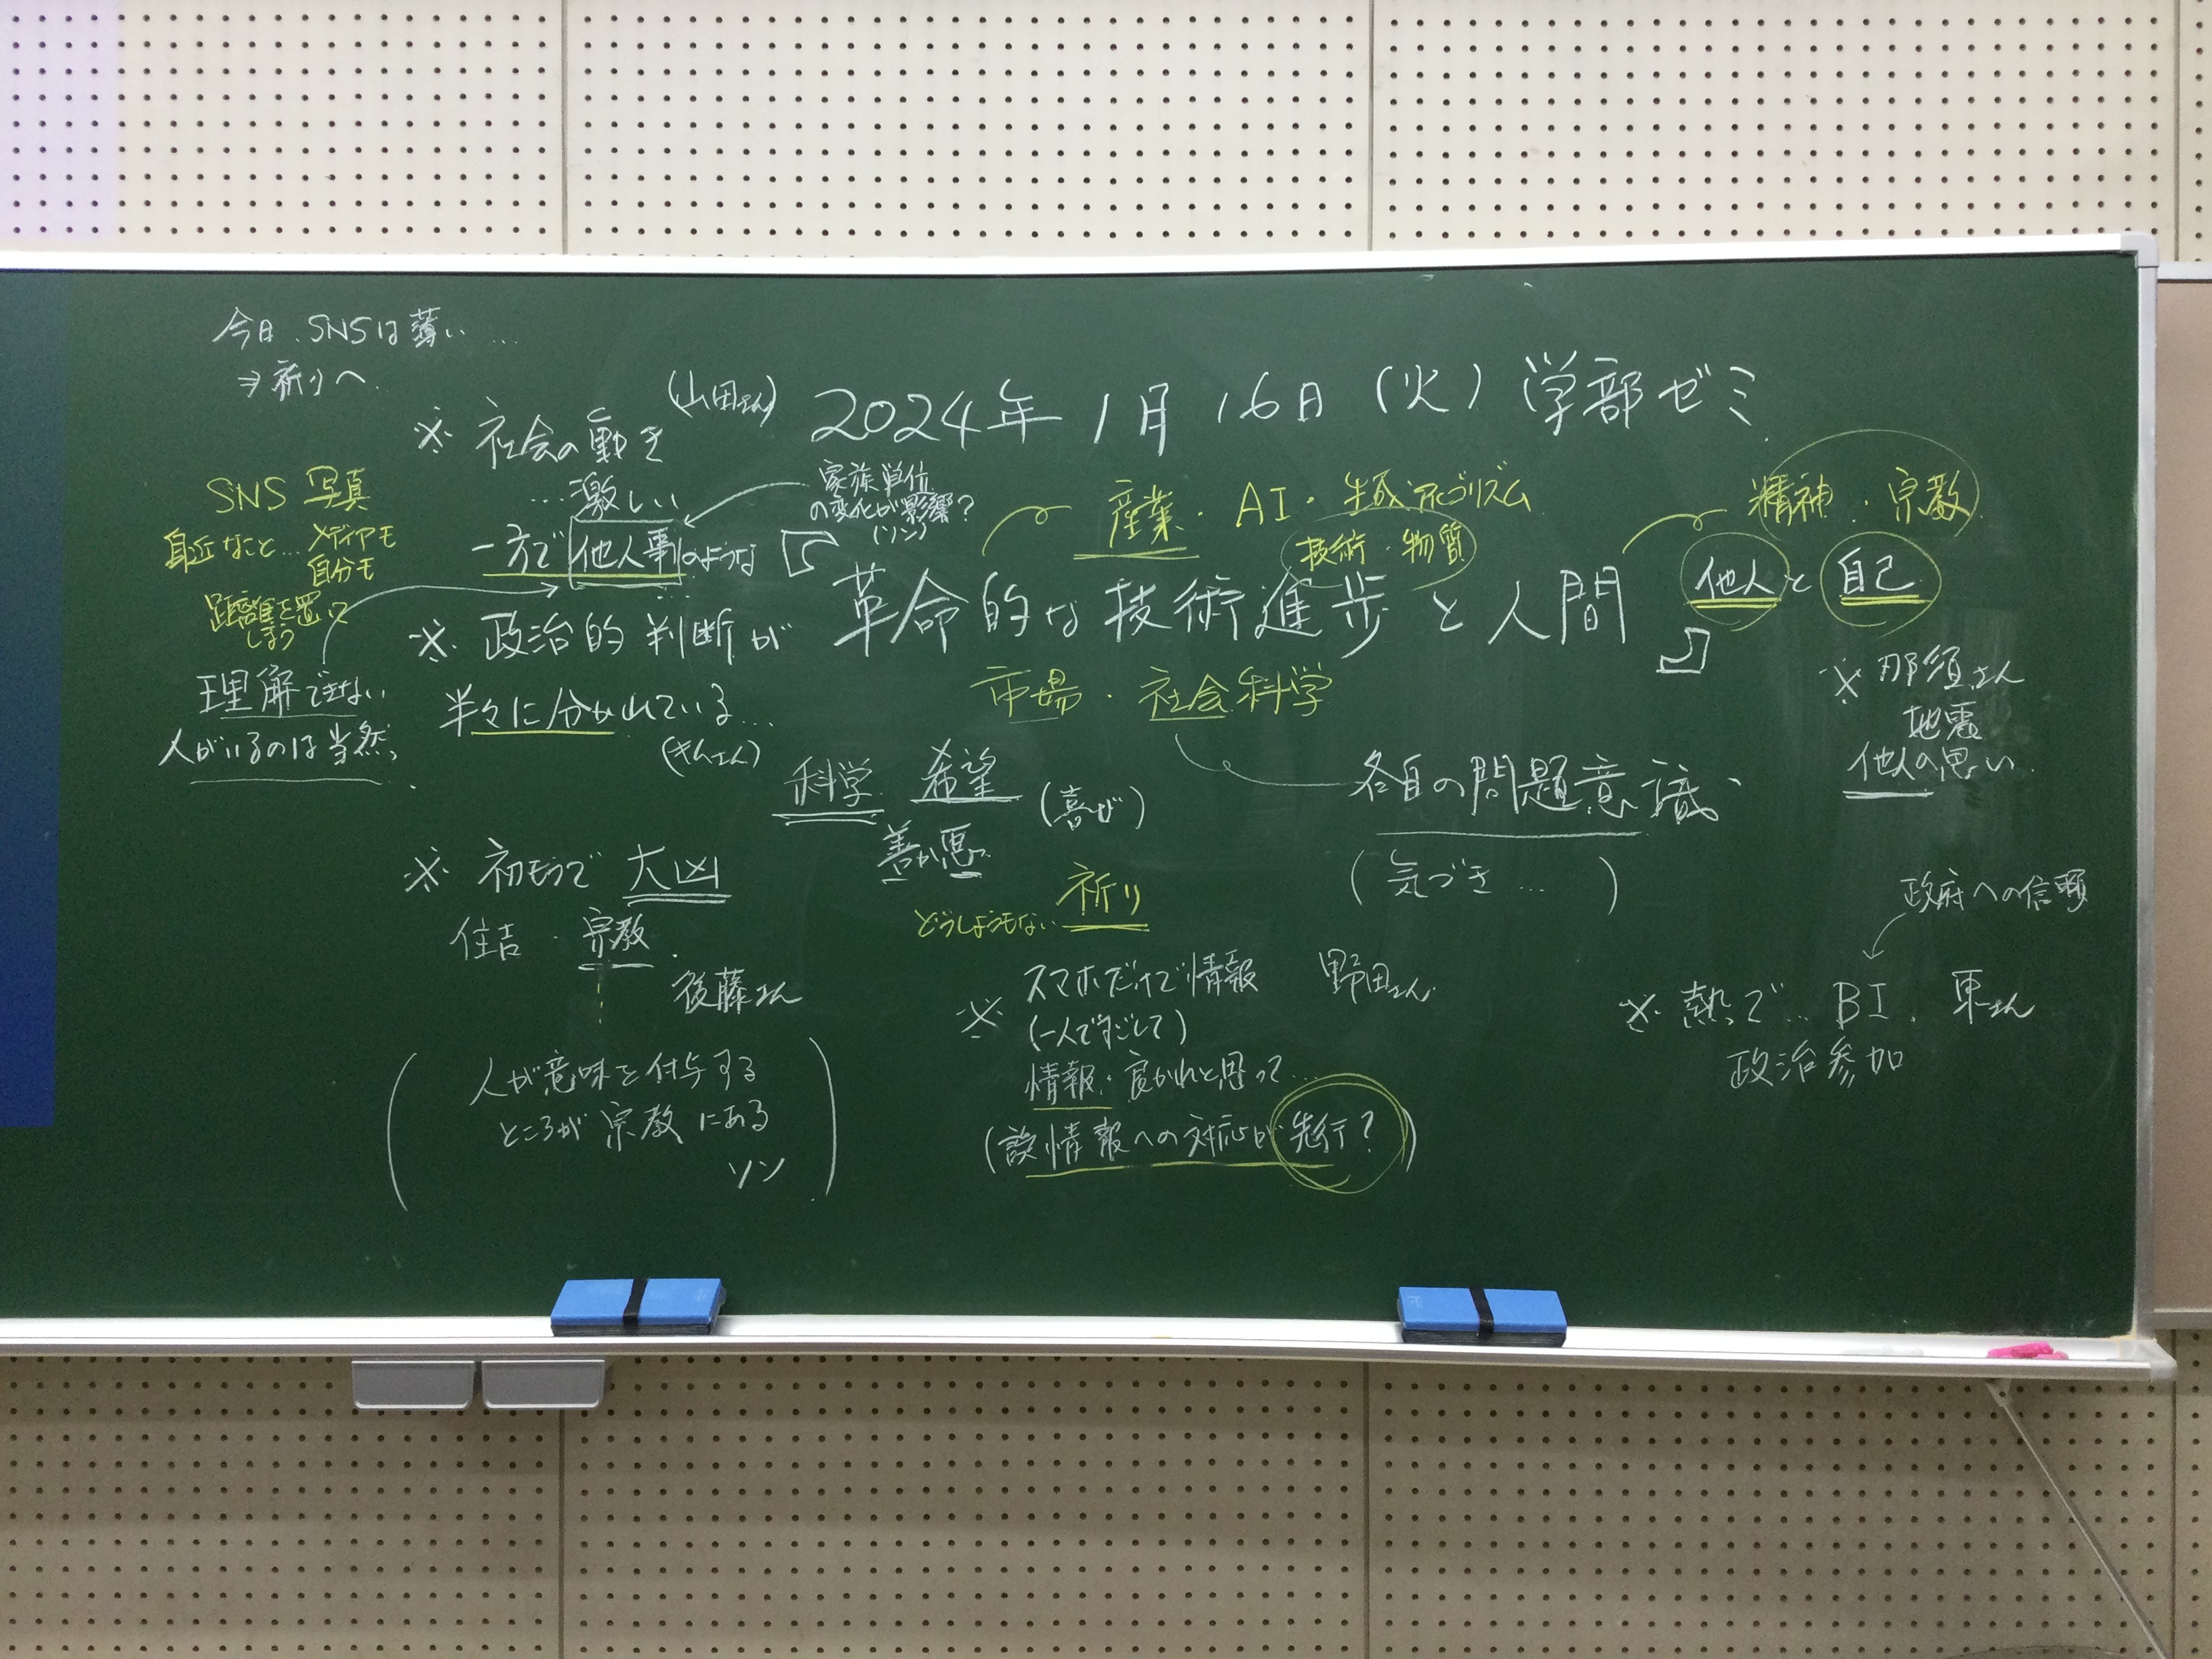 今日、SNSは薄い…
⇒祈りへ
※ 社会の動き (山田さん)
…激しい
一方で他人事のような
家族単位
の変化が影響?
(ソン)
SNS 写真
身近なこと… メディアも
自分も
距離を置いて
しまう
理解できない
人がいるのは当然、
※ 政治的判断が
半々に分かれている…
(キムさん)
2024年 1月 16日 (火) 学部ゼミ
産業・AI・生成アルゴリズム
技術・物質
精神・宗教
「革命的な技術進歩と人間」
他人と自己
市場・社会科学
各自の問題意識、
(気づき… )
科学 希望 (喜び)
善か悪
祈り
どうしようもない
※ 那須さん
地震
他人の思い
※ 初もうで 大凶
住吉・宗教
後藤さん
(人が意味を付与する
ところが宗教にある
ソン)
※ スマホだけで情報 野田さん
(一人ですごして)
情報・良かれと思って…
(誤情報への対応が先行?)
政府への信頼
※ 熱っで… BI. 東さん
政治参加